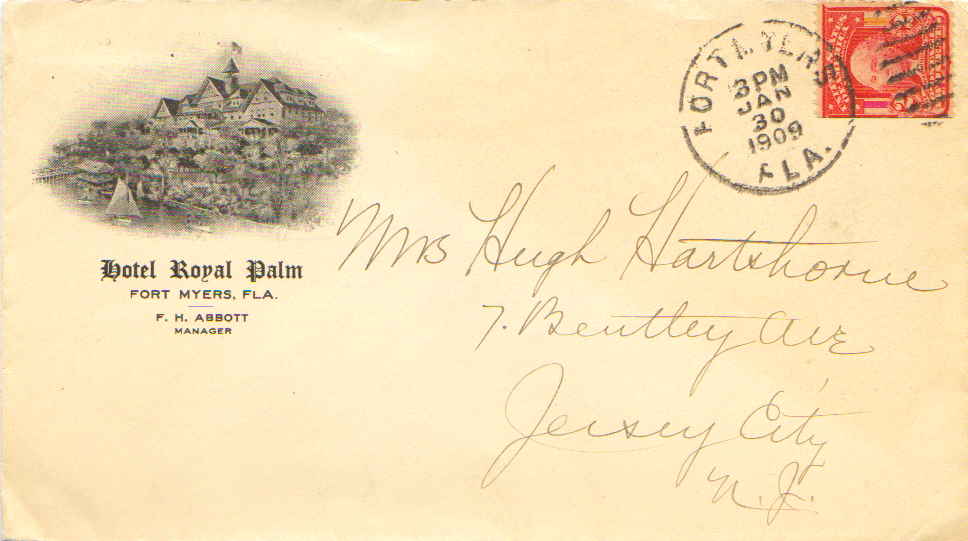 Hotel Royal Palm
FORT MYERS, FLA.
F. H. ABBOTT
MANAGER
FORT MYERS
3 PM
JAN
30
1909
FLA.
Mrs Hugh Hartshorne
7. Bentley Ave
Jersey City
N. J.